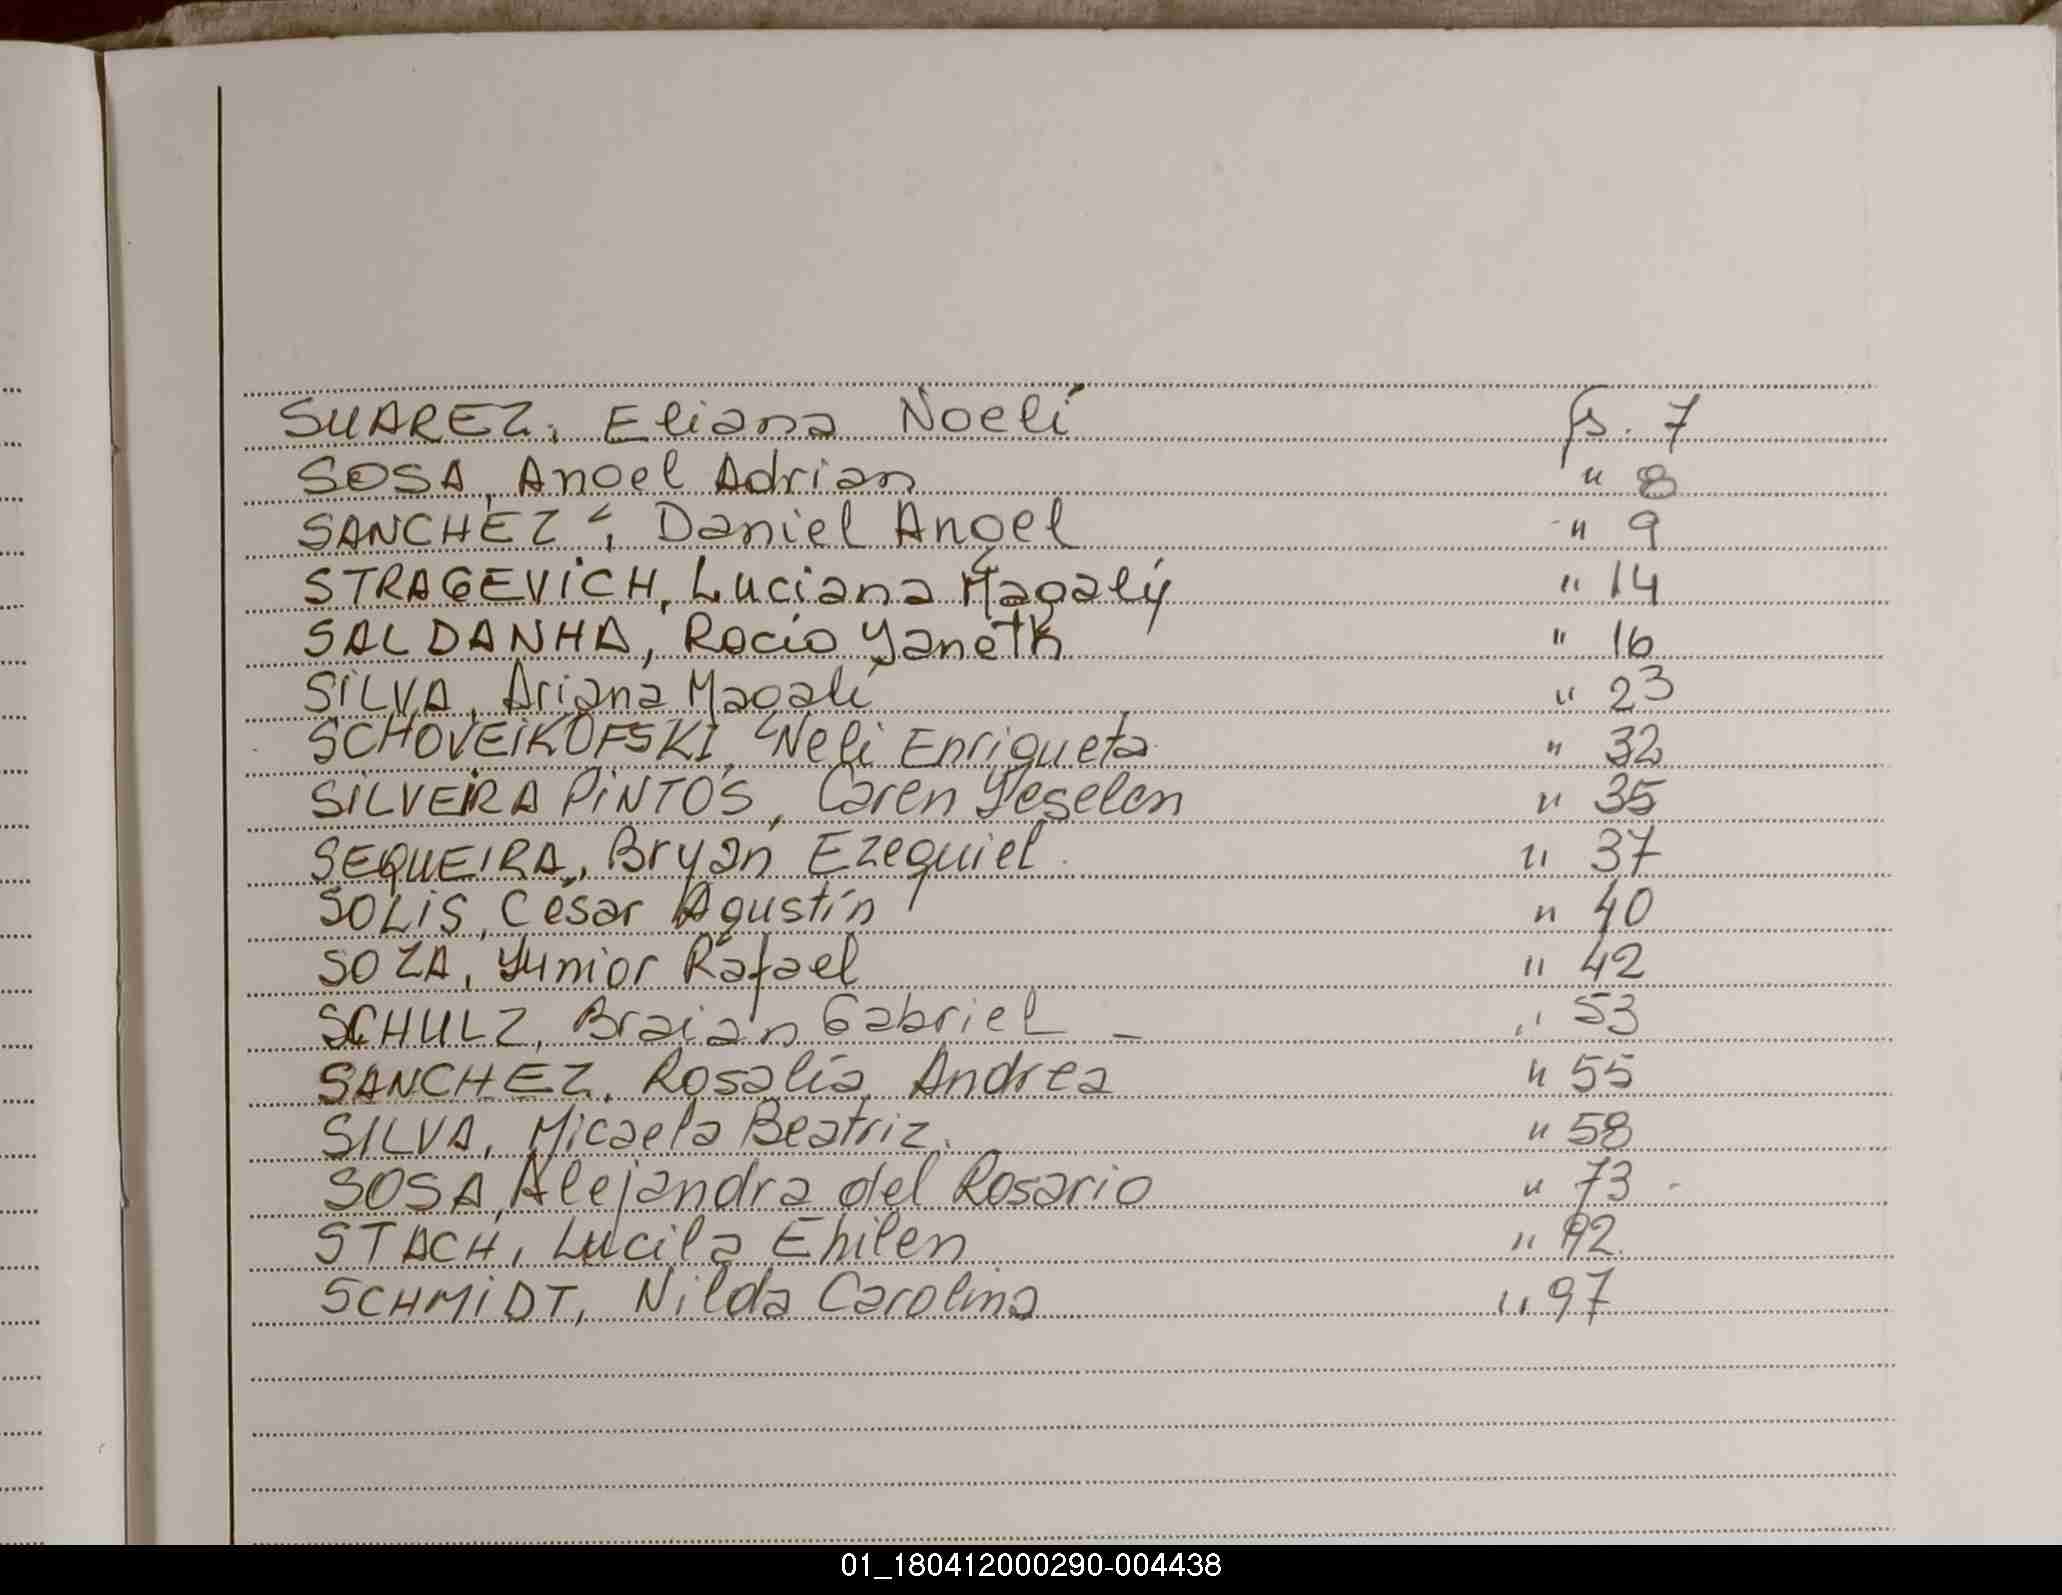 SUAREZ, Eliana Noelí fs. 7
SOSA, Angel Adrian " 8
SANCHEZ, Daniel Angel " 9
STRAGEVICH, Luciana Magalý " 14
SALDANHA, Rocio Yaneth " 16
SILVA, Ariana Magalí " 23
SCHOVEIKOFSKI, Neli Enriqueta " 32
SILVEIRA PINTOS, Caren Yeselen " 35
SEQUEIRA, Bryan Ezequiel " 37
SOLIS, César Agustín " 40
SOZA, Yunior Rafael " 42
SCHULZ, Braian Gabriel - " 53
SANCHEZ, Rosalía Andrea " 55
SILVA, Micaela Beatriz. " 58
SOSA, Alejandra del Rosario " 73
STACH, Lucila Ehilen " 92
SCHMIDT, Nilda Carolina " 97
01_180412000290-004438